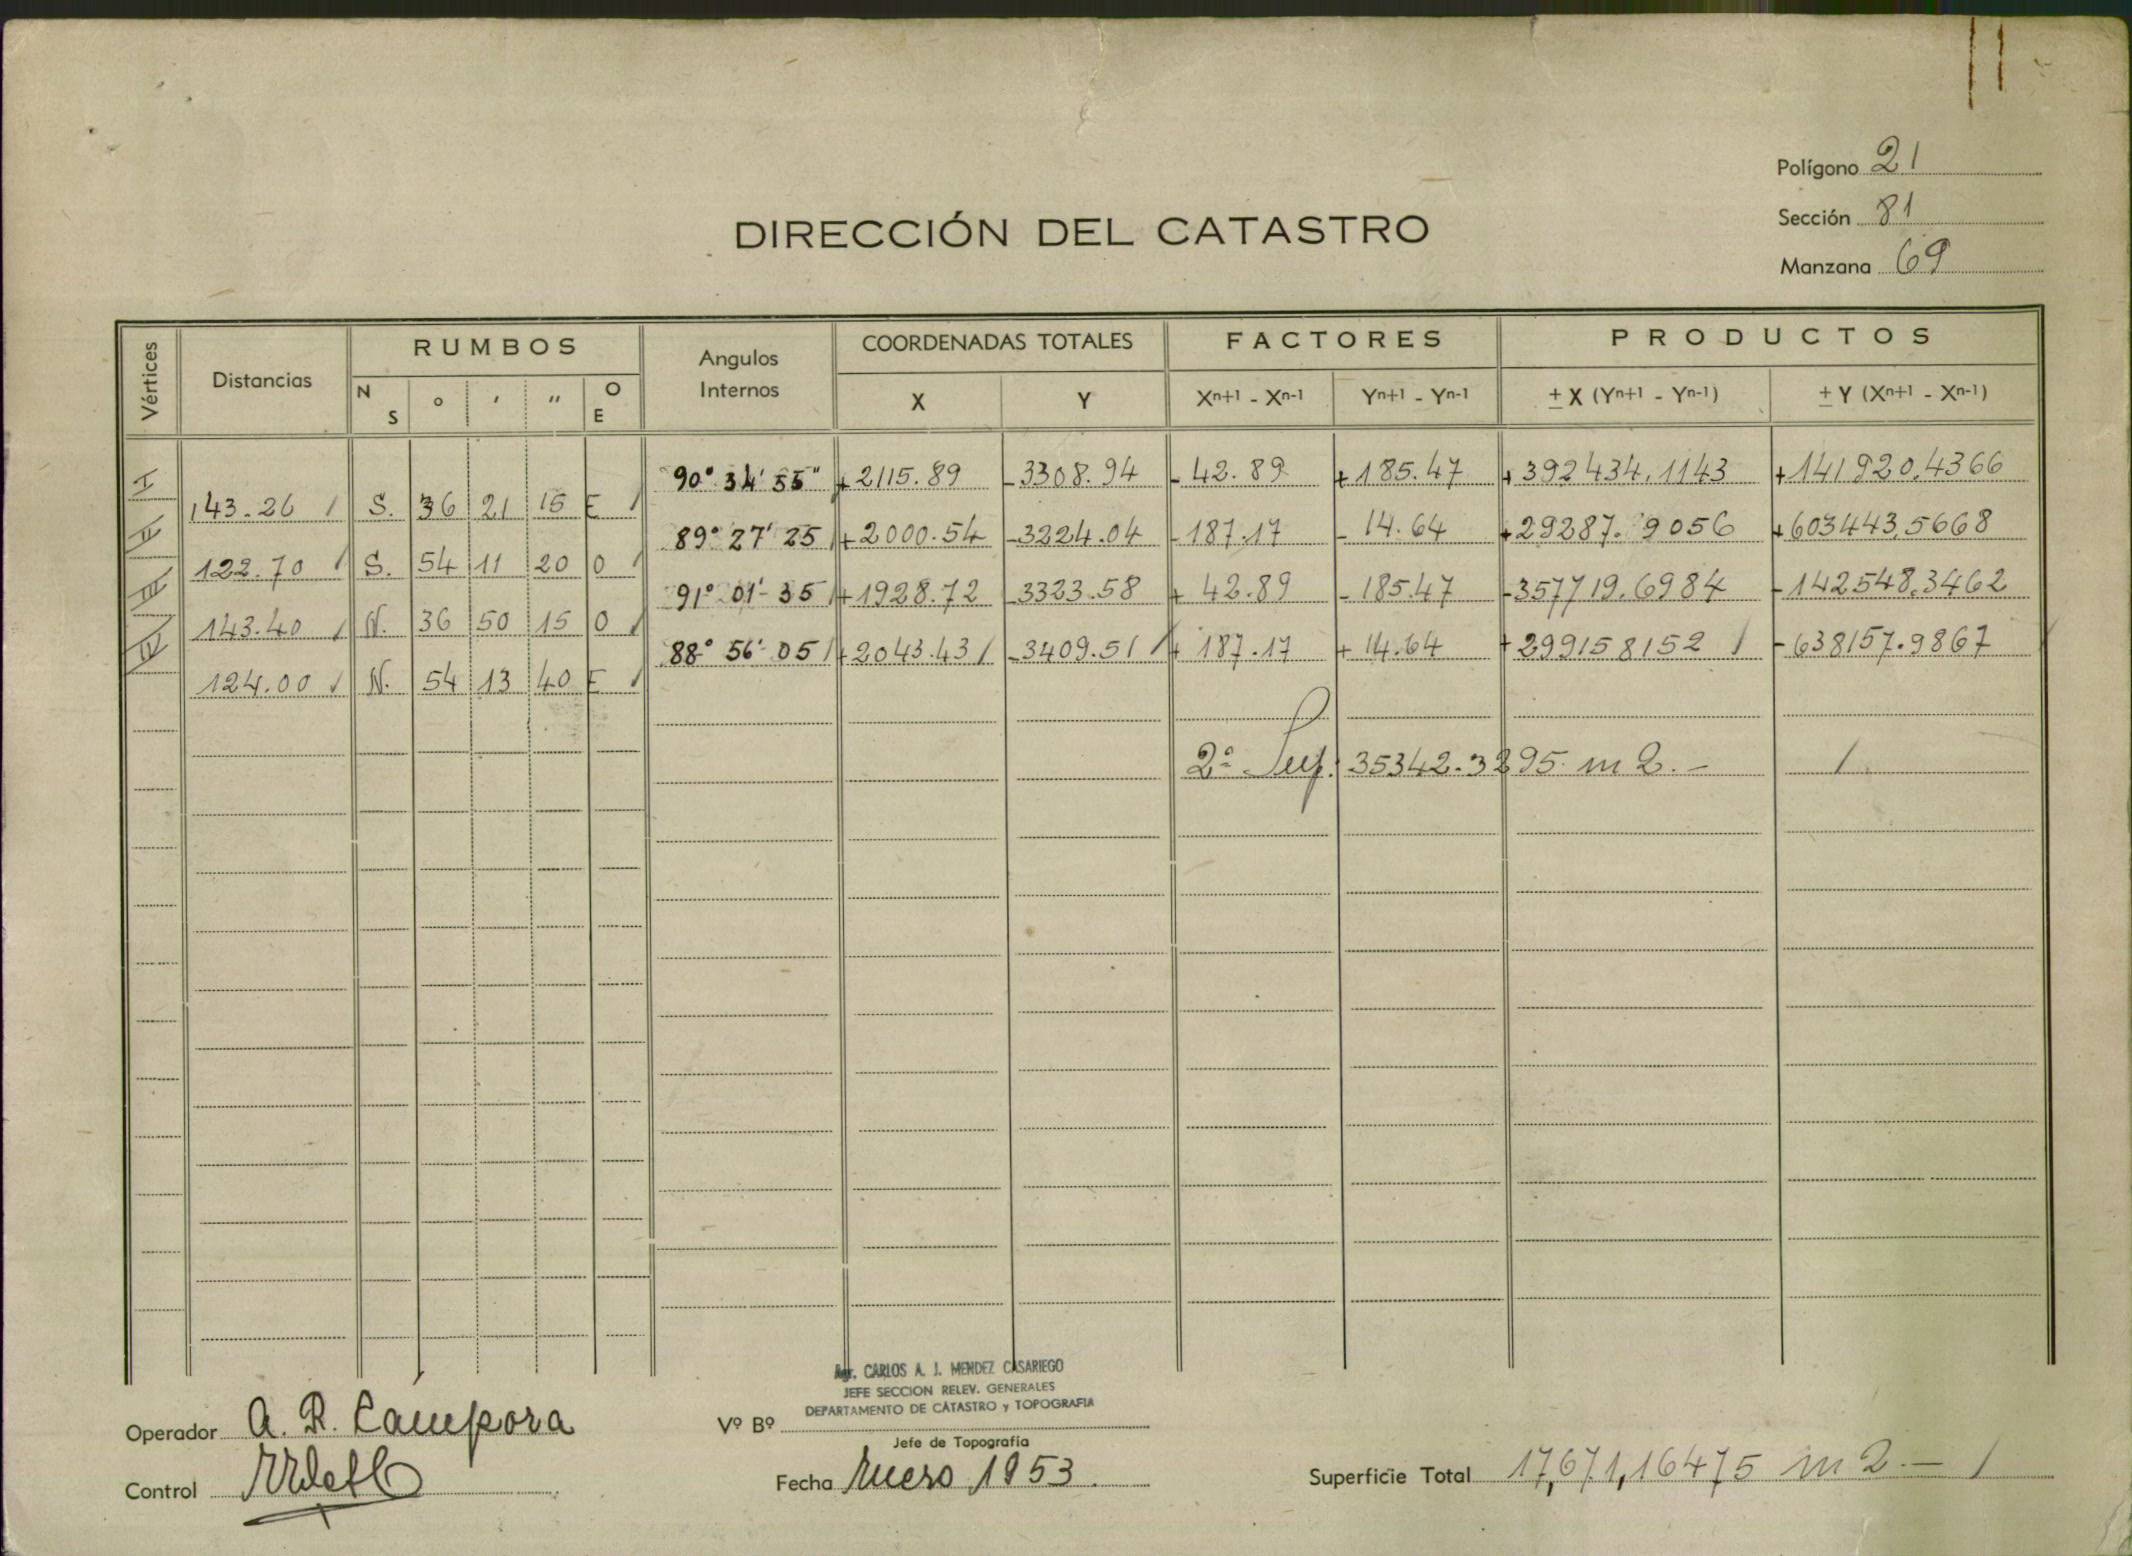 11
Polígono 21
Sección 81
Manzana 69
DIRECCIÓN DEL CATASTRO
Vértices Distancias RUMBOS Angulos Internos COORDENADAS TOTALES FACTORES PRODUCTOS
N S ° ′ ″ O E X Y Xn+1 - Xn-1 Yn+1 - Yn-1 ± X (Yn+1 - Yn-1) ± Y (Xn+1 - Xn-1)
I 90° 34' 55" +2115.89 -3308.94 - 42.89 +185.47 +392434,1143 +141920.4366
143.26 S. 36 21 15 E
II 89° 27' 25 +2000.54 -3224.04 -187.17 - 14.64 +29287.9056 +603443,5668
122.70 S. 54 11 20 O
III 91° 01' 35 +1928.72 -3323.58 + 42.89 -185.47 -357719.6984 -142548.3462
143.40 N. 36 50 15 O
IV 88° 56' 05 +2043.43 -3409.51 + 187.17 + 14.64 +299158152 -638157.9867
124.00 N. 54 13 40 E
2ª Sup. 35342.3295 m2.-
Agr. CARLOS A. J. MENDEZ CASARIEGO
JEFE SECCION RELEV. GENERALES
DEPARTAMENTO DE CATASTRO y TOPOGRAFIA
Operador A. R. Cámpora
Vº Bº
Jefe de Topografía
Control
Fecha Enero 1953.
Superficie Total 17,671,16475 m2.-